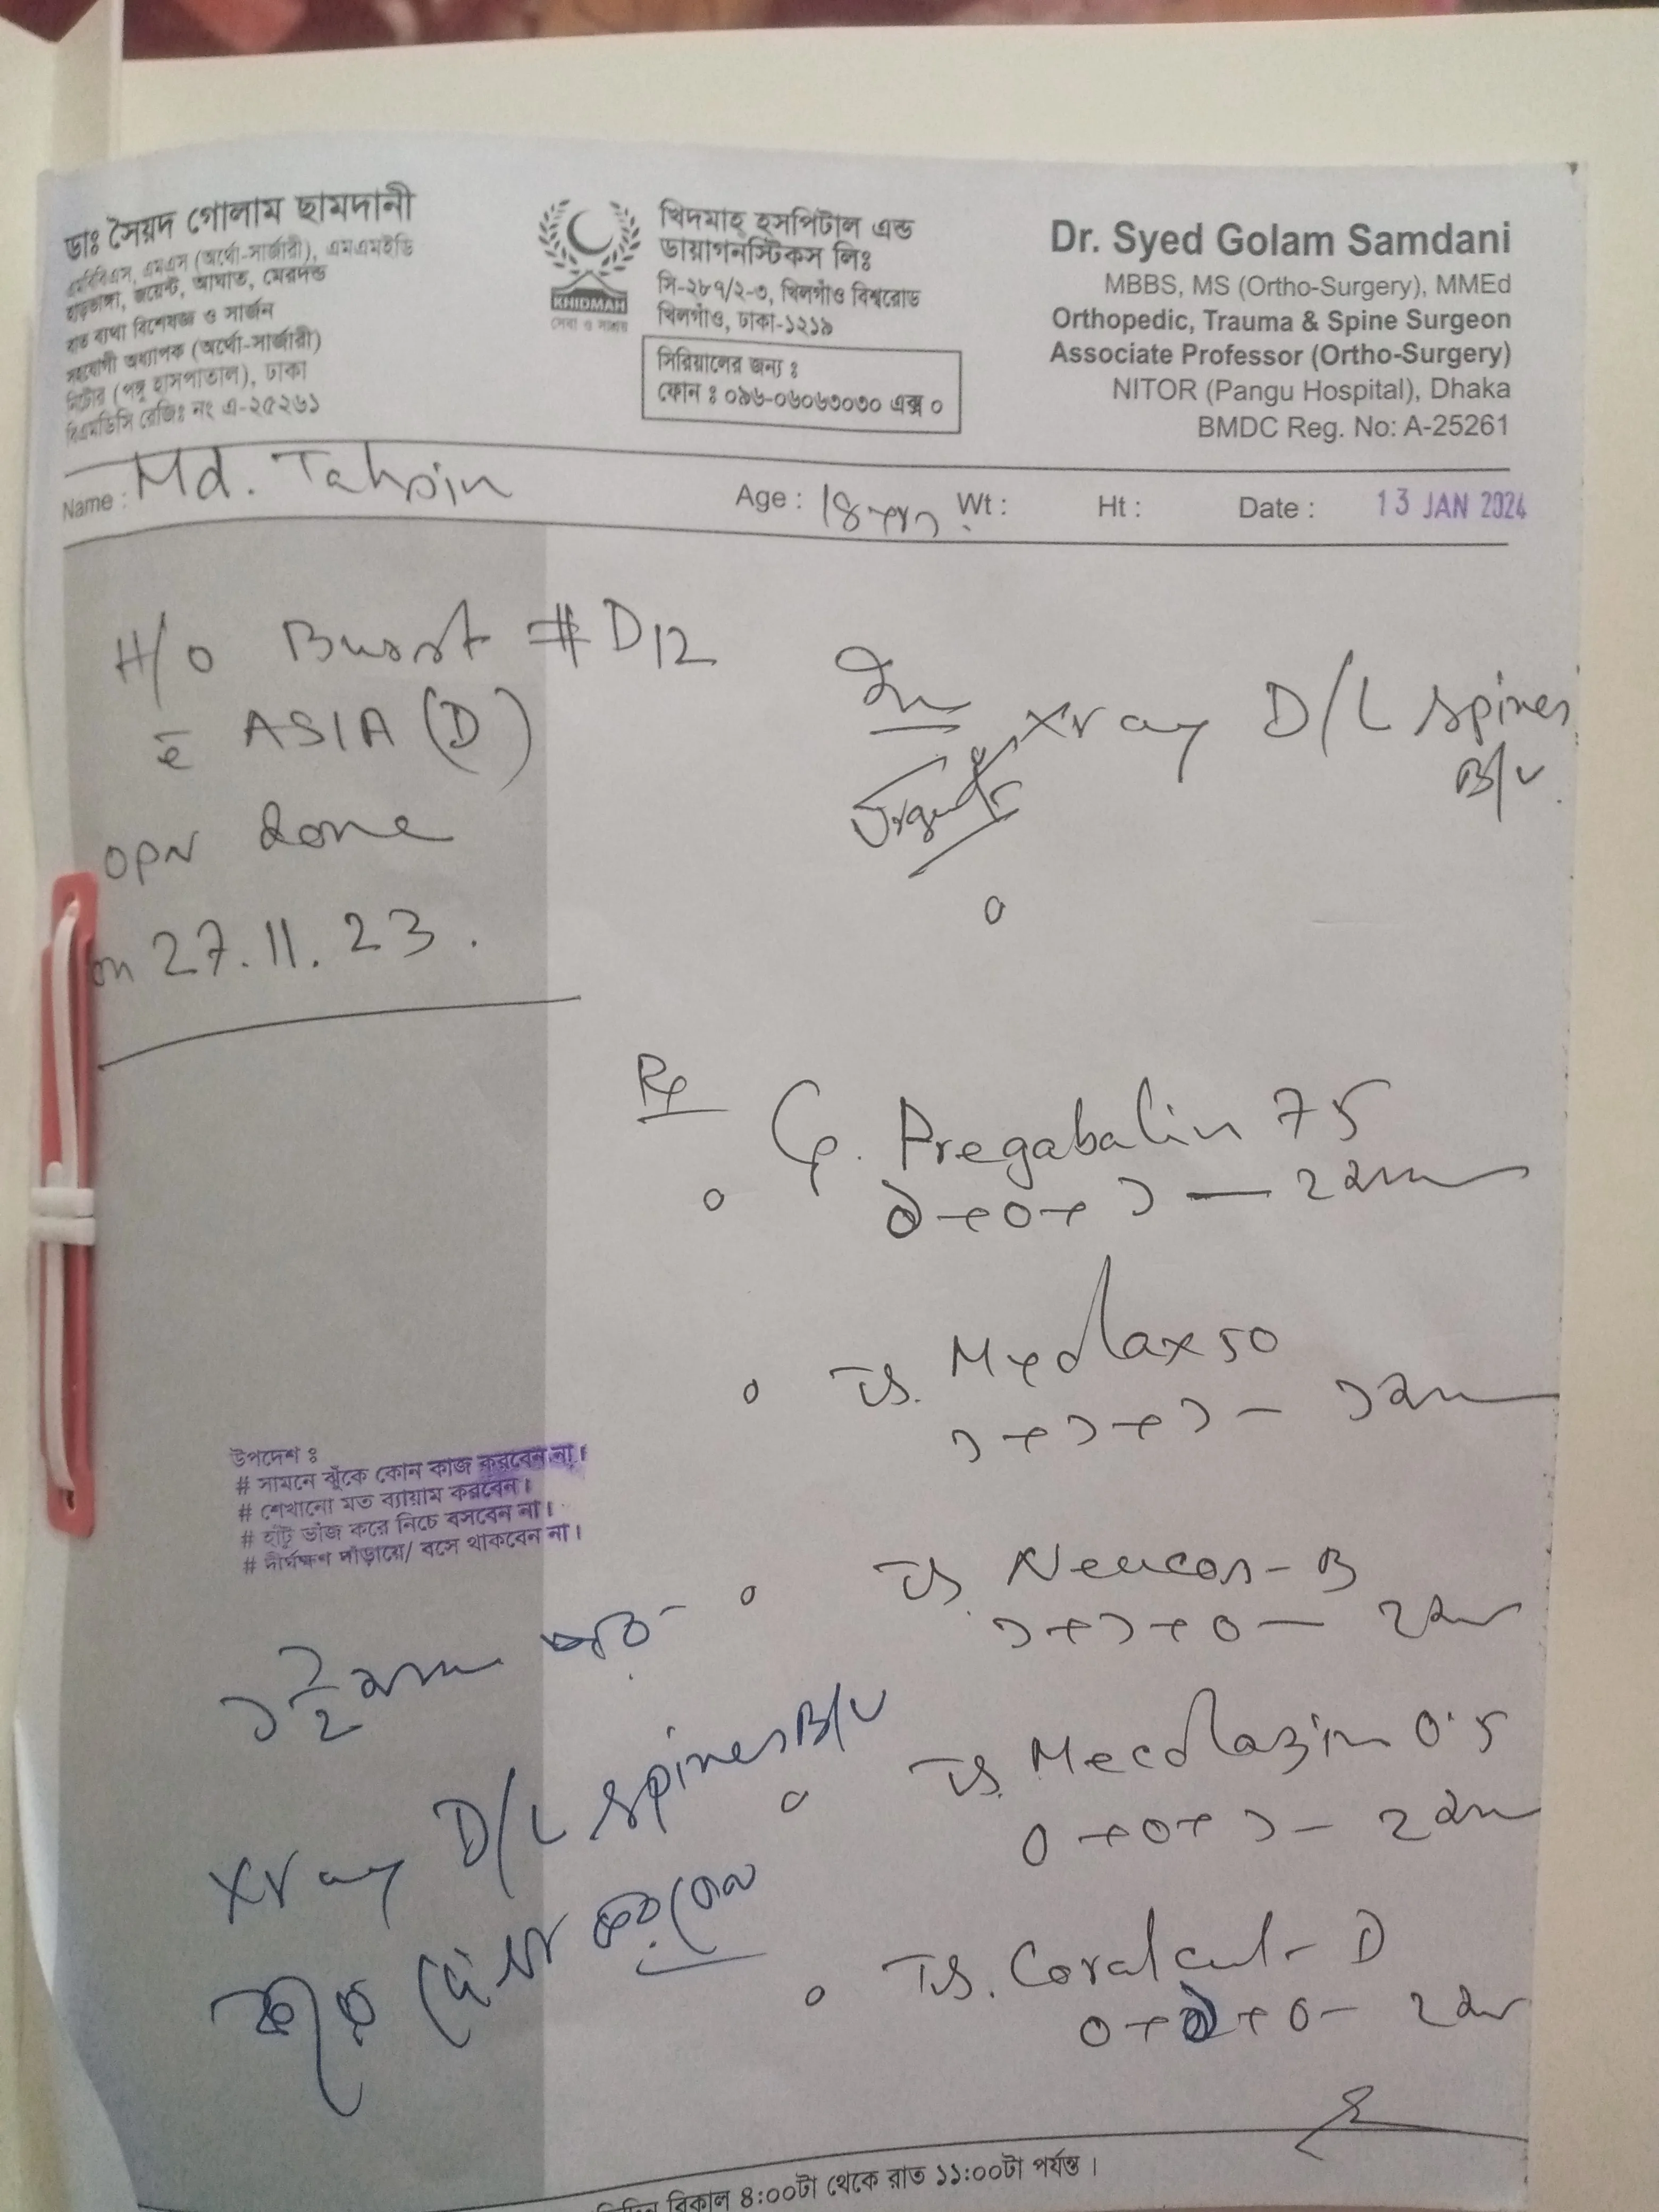 ডাঃ সৈয়দ গোলাম ছামদানী
এমবিবিএস, এমএস (অর্থো-সার্জারী), এমএমইডি
হাড়ভাঙ্গা, জয়েন্ট, আঘাত, মেরুদন্ড
বাত ব্যথা বিশেষজ্ঞ ও সার্জন
সহযোগী অধ্যাপক (অর্থো-সার্জারী)
নিটোর (পঙ্গু হাসপাতাল), ঢাকা
বিএমডিসি রেজিঃ নং এ-২৫২৬১
KHIDMAH
সেবা ও সাশ্রয়
খিদমাহ্ হসপিটাল এন্ড
ডায়াগনস্টিকস লিঃ
সি-২৮৭/২-৩, খিলগাঁও বিশ্বরোড
খিলগাঁও, ঢাকা-১২১৯
সিরিয়ালের জন্য ঃ
ফোন ঃ ০৯৬-০৬০৬৩০৩০ এক্স ০
Dr. Syed Golam Samdani
MBBS, MS (Ortho-Surgery), MMEd
Orthopedic, Trauma & Spine Surgeon
Associate Professor (Ortho-Surgery)
NITOR (Pangu Hospital), Dhaka
BMDC Reg. No: A-25261
Name : Md. Tahsin Age : 18 yrs Wt : Ht : Date : 13 JAN 2024
H/o Burst # D12
c̄ ASIA (D)
opn done
on 27.11.23.
Xray D/L spines
B/V
Urgent
Rx
Cp. Pregabalin 75
০+০+১ — ২ মাস
Tb. Myolax 50
১+১+১ — ১ মাস
Tb. Neucos-B
১+১+০ — ২ মাস
Tb. Mecolazin 0.5
০+০+১ — ২ মাস
Tb. Coralcal-D
০+১+০ — ২ মাস
উপদেশ ঃ
# সামনে ঝুঁকে কোন কাজ করবেন না।
# শেখানো মত ব্যায়াম করবেন।
# হাঁটু ভাঁজ করে নিচে বসবেন না।
# দীর্ঘক্ষণ দাঁড়ায়ে/ বসে থাকবেন না।
১ ১/২ মাস পর
Xray D/L spines B/V
করে দেখা করবেন
বিকাল ৪:০০টা থেকে রাত ১১:০০টা পর্যন্ত।